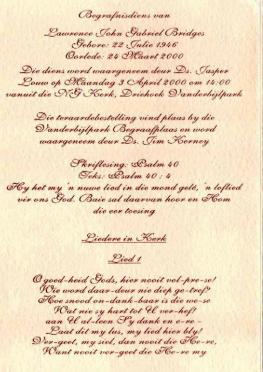 Begrafnisdiens van
Lawrence John Gabriel Bridges
Gebore: 22 Julie 1946
Oorlede: 24 Maart 2000
Die diens word waargeneem deur Ds. Jasper
Louw op Maandag 3 April 2000 om 14:00
vanuit die N G Kerk, Driehoek Vanderbijlpark
Die teraardebestelling vind plaas by die
Vanderbijlpark Begraafplaas en word
waargeneem deur Ds. Jim Kerney
Skriflesing: Psalm 40
Teks: Psalm 40 : 4
Hy het my 'n nuwe lied in die mond gelê, 'n loflied
vir ons God. Baie sal daarvan hoor en Hom
die eer toesing
Liedere in Kerk
Lied 1
O goed-heid Gods, hier nooit vol-pre-se!
Wie word daar-deur nie diep ge-tref?
Hoe snood on-dank-baar is die we-se
Wat nie sy hart tot U ver-hef?
aan U al-leen Sy dank en e-re -
Laat dit my lus, my lied hier bly!
Ver-geet, my siel, dan nooit die He-re,
Want nooit ver-geet die He-re my